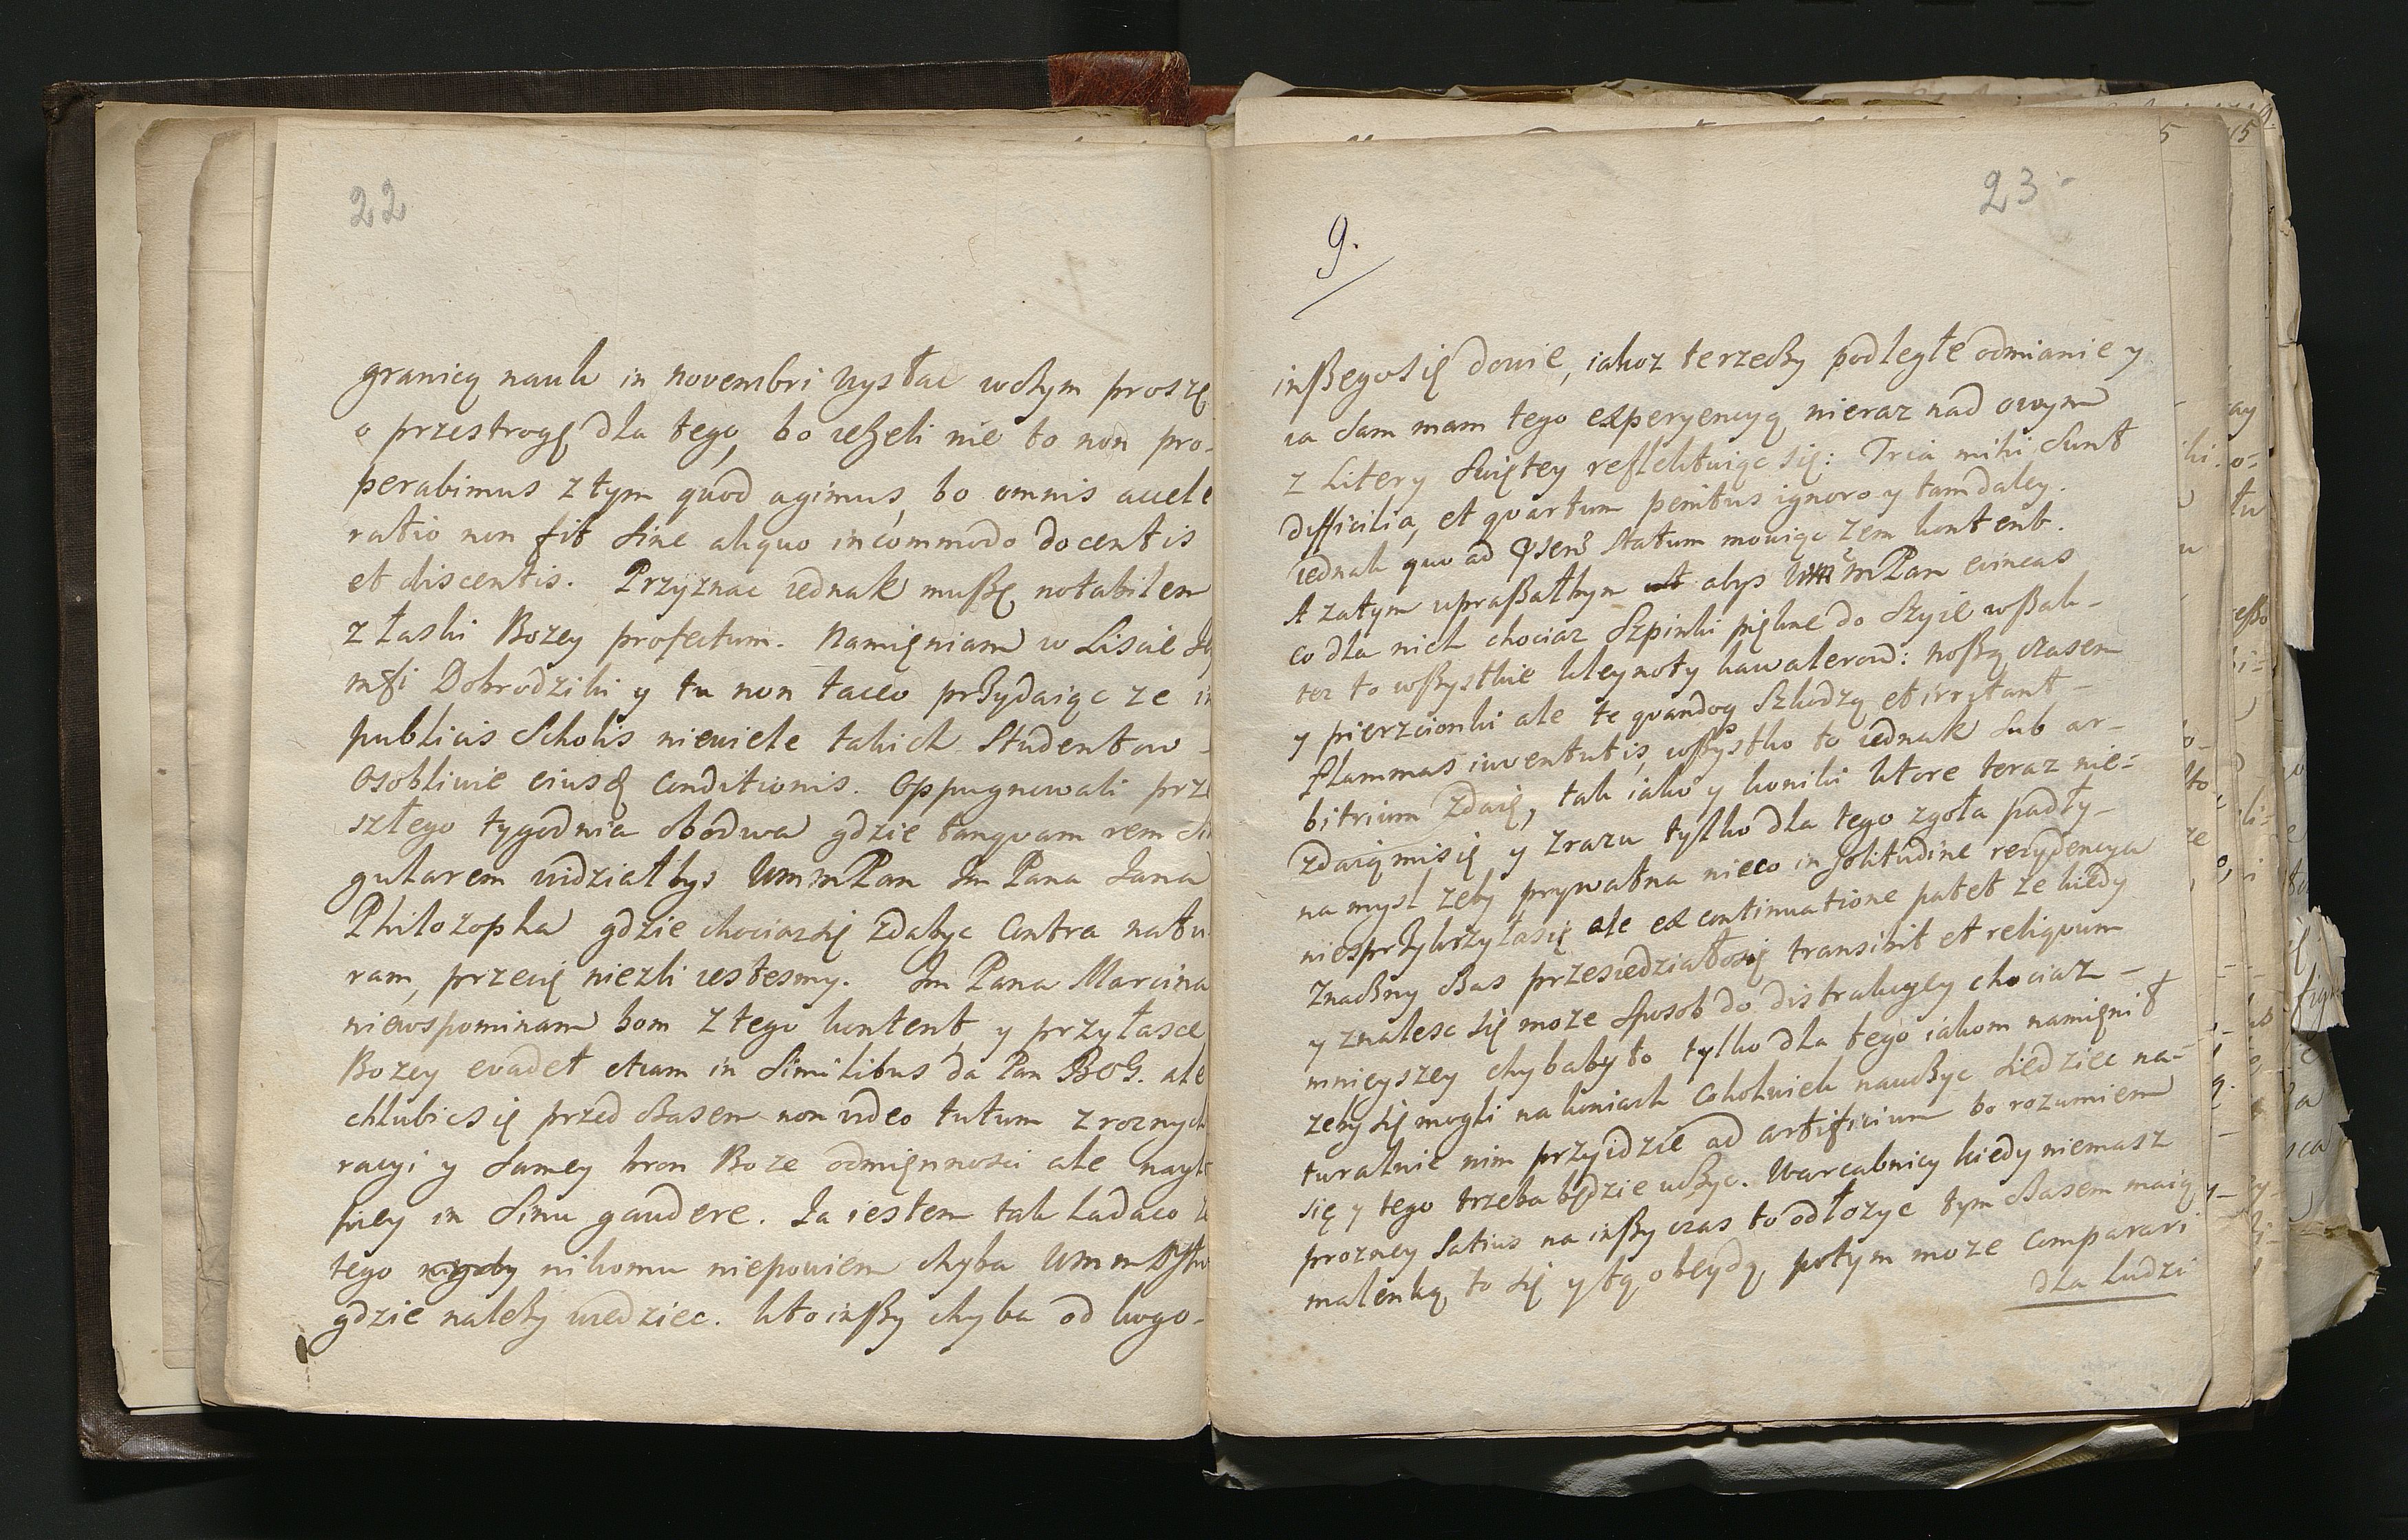 22
granicą nauk in novembri wysłac wchym proszę
o przestrogę dla tego, bo ieżeli nie to non pro-
perabimus z tym quod agimus, bo omnis accele
ratio non fit sine aliquo incommodo docentis
et discentis. Przyznac iednak mußę notabilem
z łaski Bozey profectum. Namięniam w Liscie
Dobrodziki y tu non taceo przydaiąc ze in
publicis Scholis niewiele takich Studentow -
osobliwie eiusd conditionis. Oppugnowali prze
szłego tygodnia obodwa gdzie tanquam rem sin
gularem widziałbys WmmPan Jm Pana Jana
Philozopha gdzie chociaz się zdabyc contra natu
ram, przecię niezli iestesmy. Jm Pana Marcina
niewspominam bom z tego kontent, y przy łasce
Bozey evadet etiam in similibus da Pan BOG. ale
chlubic się przed czasem non video tutum z roznych
racyi y samey bron Boze odmięnnosci ale nayle
piey in sinu gaudere. Ja iestem tak ladaco ze
tego nikomu niepowiem chyba Wmm
gdzie należy wiedziec. kto inßy chyba od kogo-
23
9.
inßego się dowie, iakoz te rzeczy podległe odmianie y
ia sam mam tego experyencyą nieraz nad owym
z Litery Swiętey reflektuiąc się: Tria mihi sunt
difficilia, et quartum penitus ignoro y tam daley.
iednak quo ad Psens statum mowiąc zem kontent.
A zatym upraßałbym abys WmmPan evincas
co dla nich chociaz Szpinki piękne do Szyie wßak-
tez to wßystkie kleynoty kawalerow: noßą czasem
y pierzcionki ale te quandoq szkodzą et irritant-
flammas iuventutis, wßystko to iednak sub ar-
bitrium zdaię, tak iako y koniki ktore teraz nie=
zdaią mi się y zrazu tylko dla tego zgoła padły-
na mysl zeby prywatna nieco in solitudine rezydencya
niesprzykrzyła się ale ex continuatione patet ze kiedy
znaczny czas przesiedziało się transibit et reliquum
y znalesc się moze sposob do distrakcyey chociaz -
mnieyszey chybaby to tylko dla tego iakom namięnił
zeby się mogli na koniach cokolwiek nauczyc siedziec na-
turalnie nim przyidzie ad artificium bo rozumiem
się y tego trzeba będzie uczyc. Warcabnicy kiedy niemasz
prozney satius na inßy czas to odłozyc tym czasem maią
malenką, to się y tą obeydą, potym moze comparari
dla ludzi